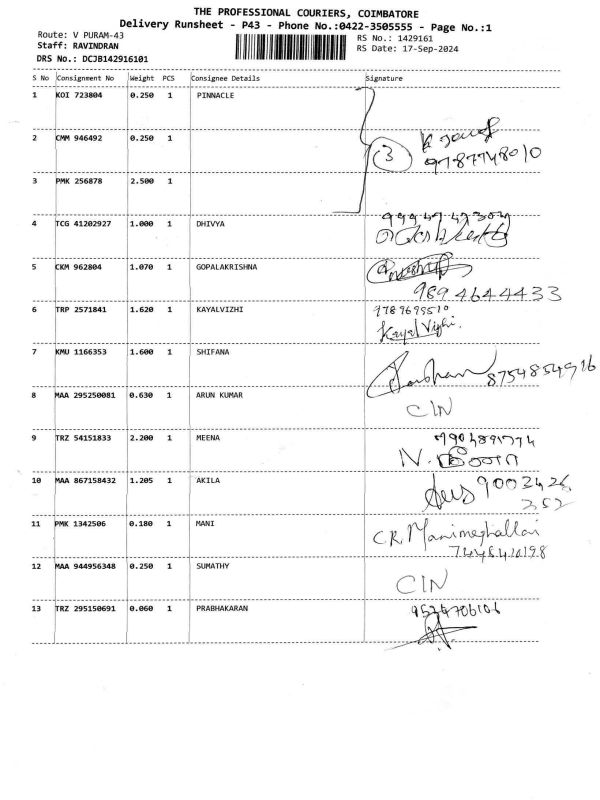 THE PROFESSIONAL COURIERS, COIMBATORE
Delivery Runsheet - P43 - Phone No.:0422-3505555 - Page No.:1
Route: V PURAM-43
Staff: RAVINDRAN
DRS No.: DCJB142916101
RS No.: 1429161
RS Date: 17-Sep-2024
S No Consignment No Weight PCS Consignee Details Signature
1 KOI 723804 0.250 1 PINNACLE
2 CMM 946492 0.250 1
3 9787748010
3 PMK 256878 2.500 1
4 TCG 41202927 1.000 1 DHIVYA
5 CKM 962804 1.070 1 GOPALAKRISHNA
9894644433
6 TRP 2571841 1.620 1 KAYALVIZHI 9789699510
Kayal Vizhi.
7 KMU 1166353 1.600 1 SHIFANA
8754854916
8 MAA 295250081 0.630 1 ARUN KUMAR CIN
9 TRZ 54151833 2.200 1 MEENA
N. மீனா
10 MAA 867158432 1.205 1 AKILA 9003426
252
11 PMK 1342506 0.180 1 MANI C.R. Manimeghallai
12 MAA 944956348 0.250 1 SUMATHY CIN
13 TRZ 295150691 0.060 1 PRABHAKARAN